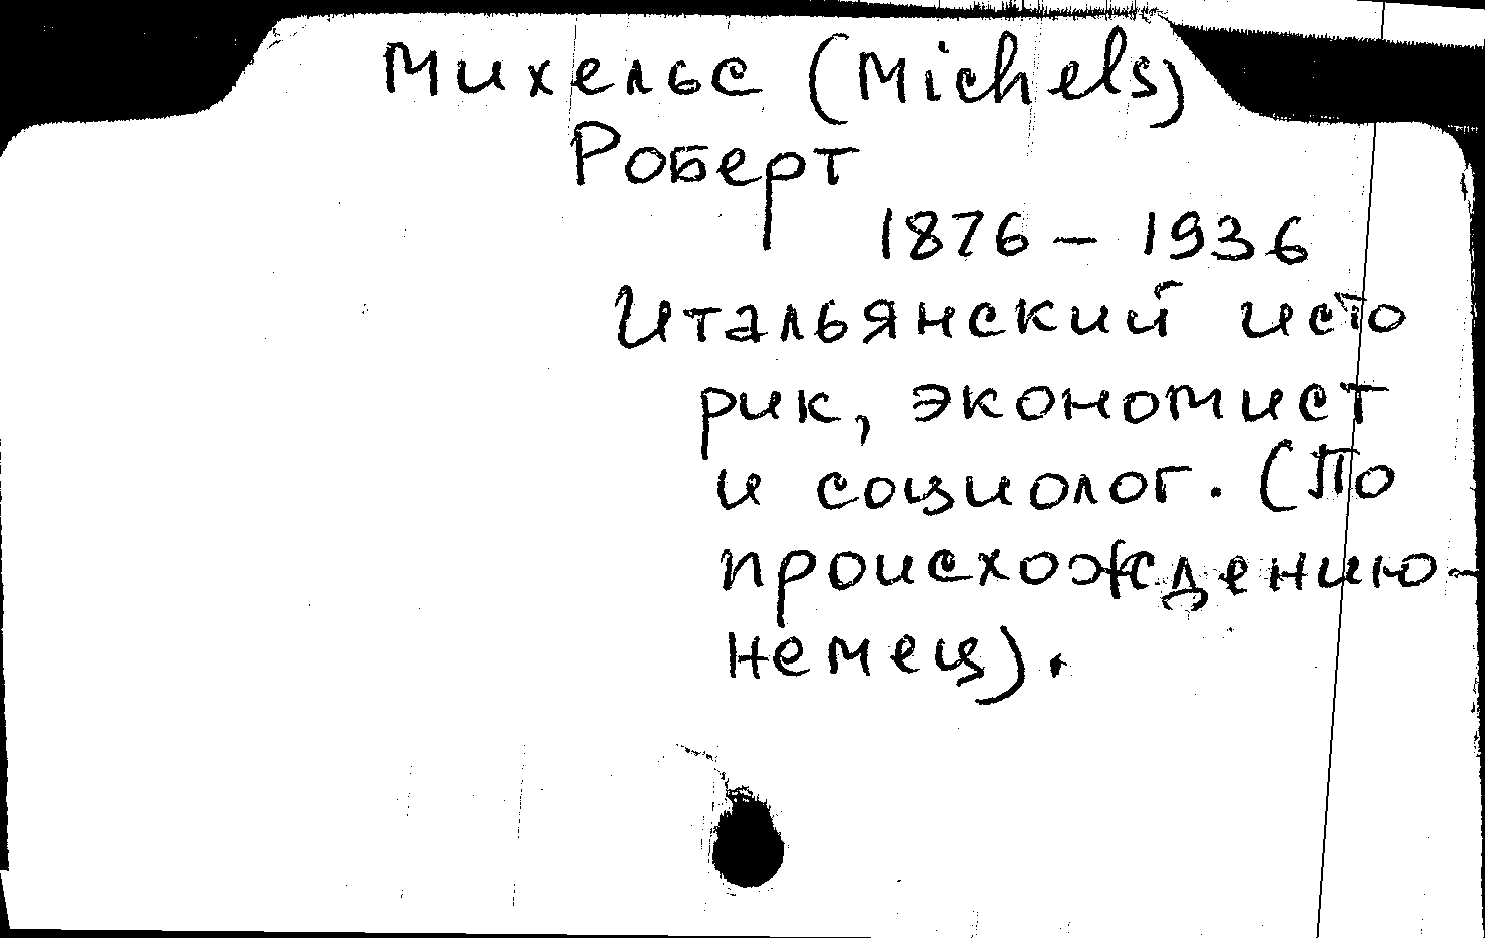 Михельс (Michels)
Роберт
1876 – 1936
Итальянский исто
рик, экономист
и социолог. (По
происхождению-
немец).